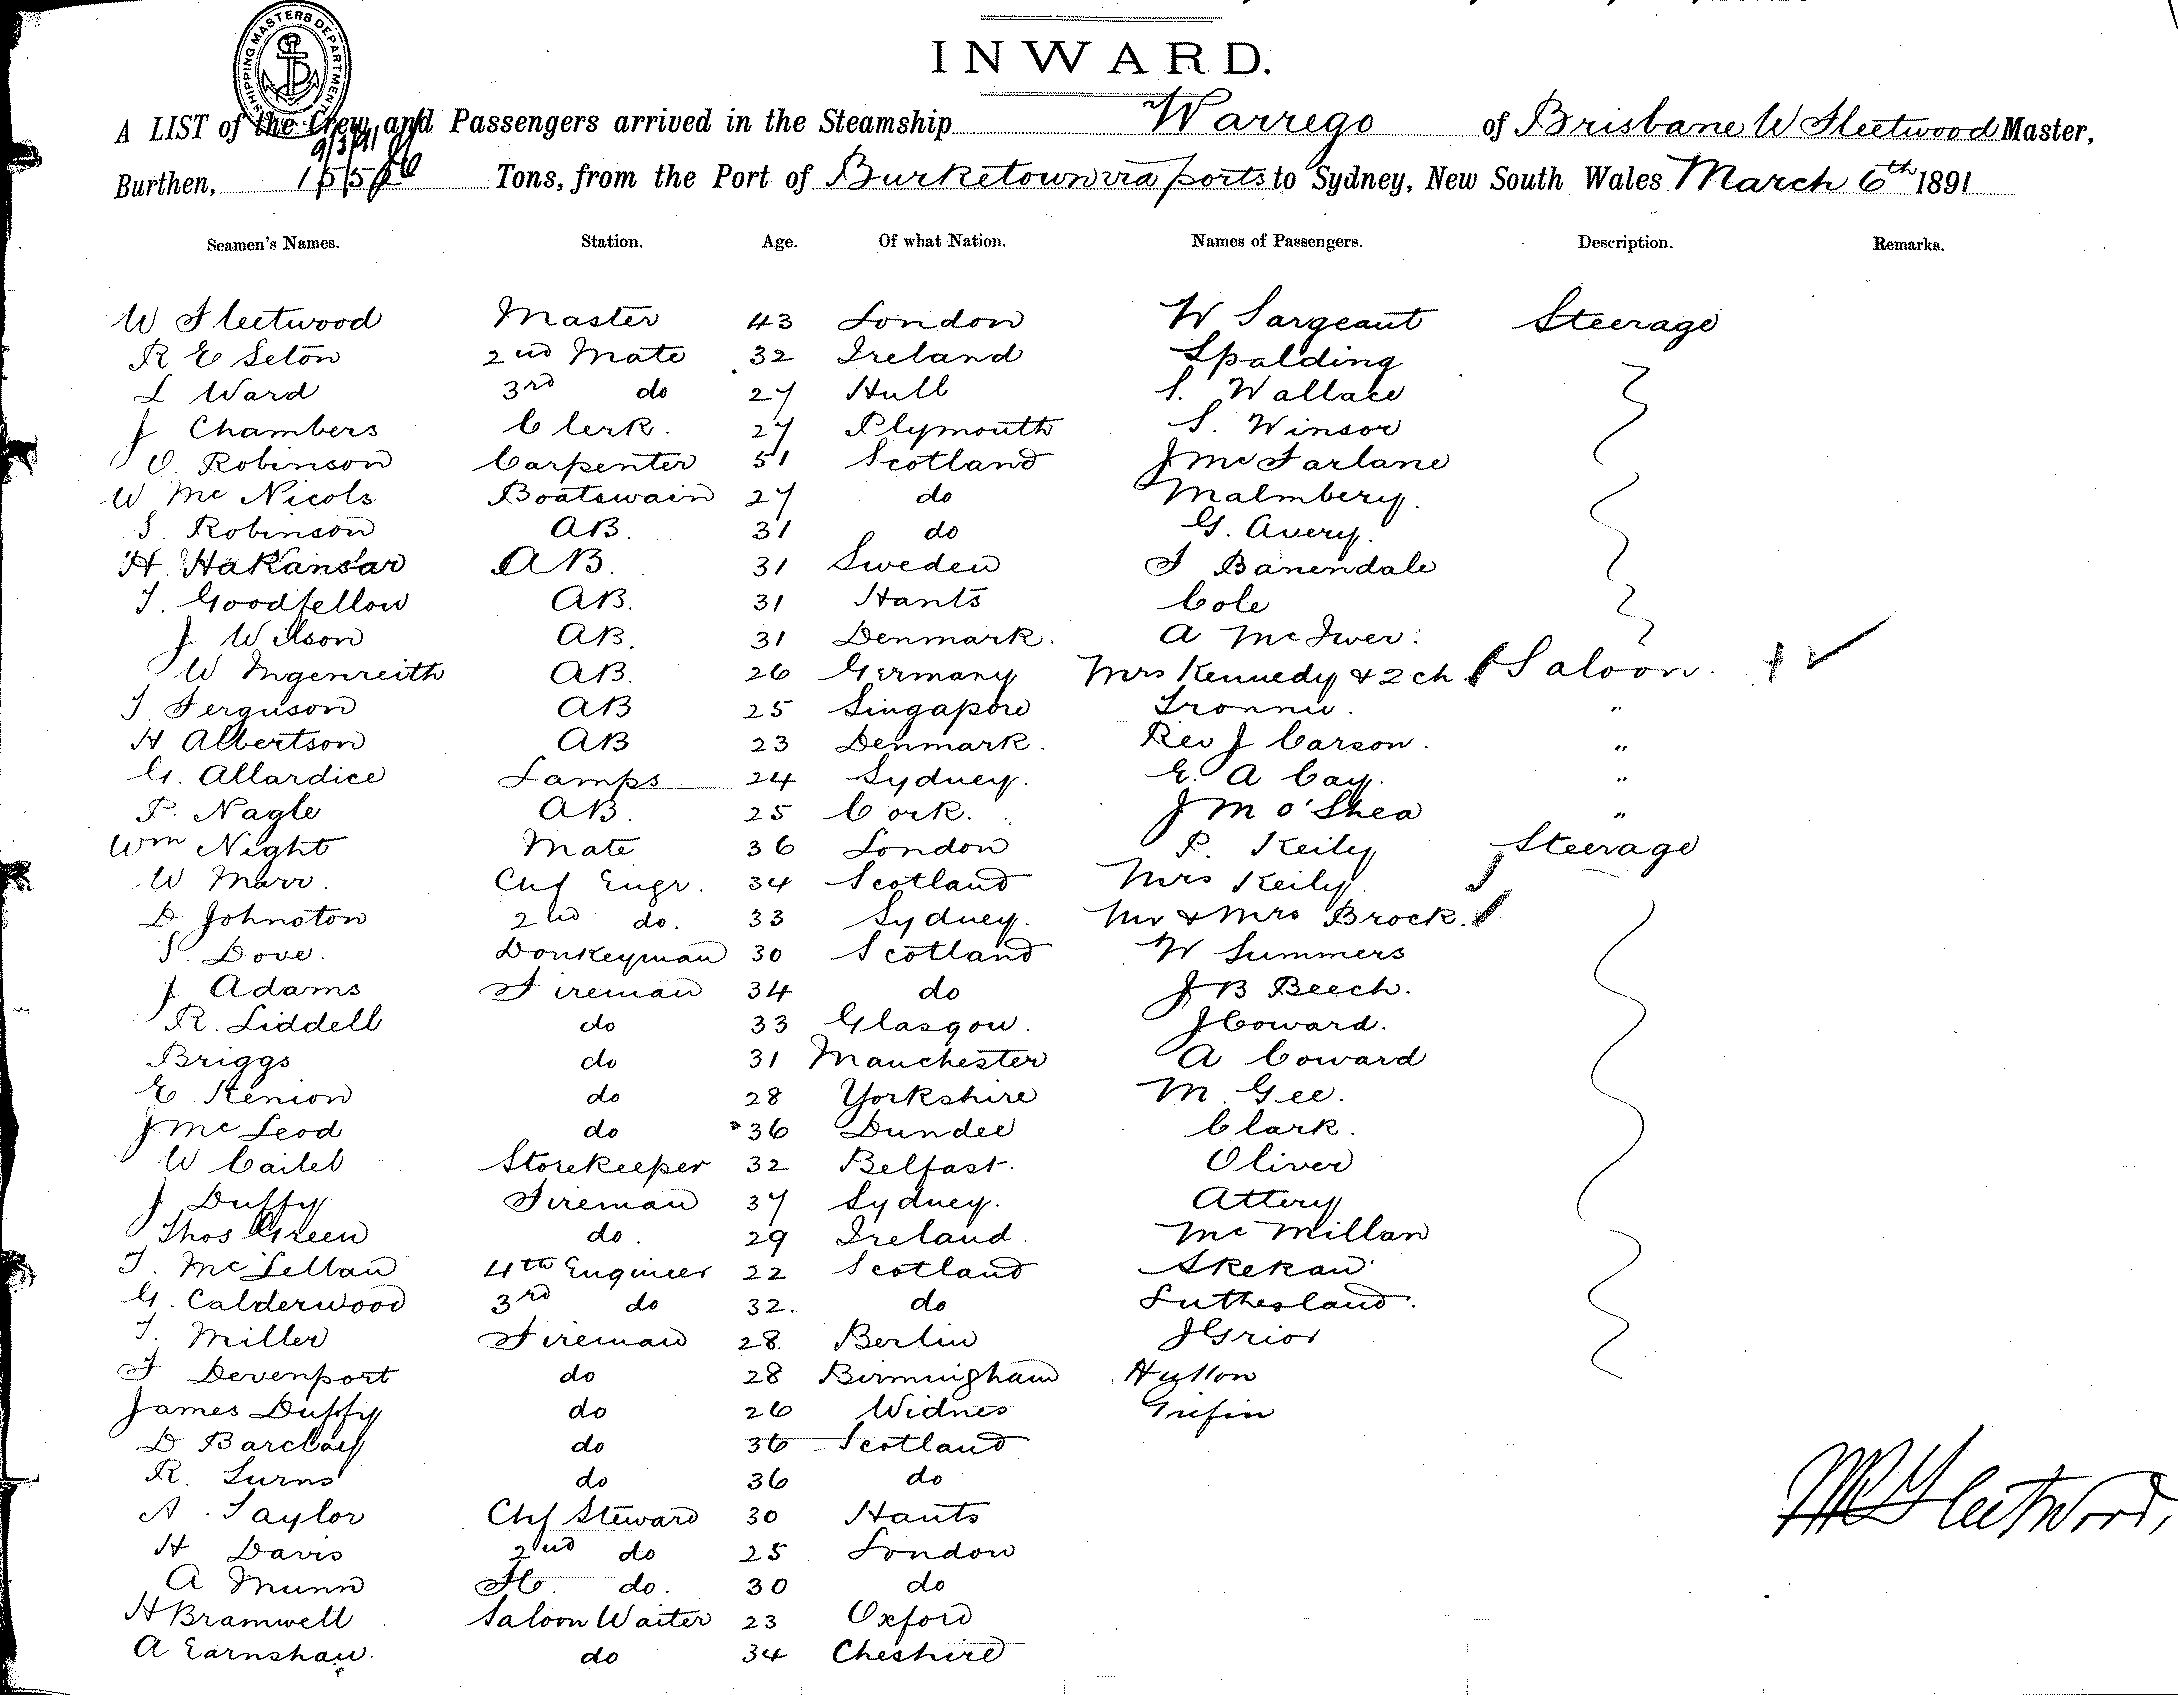 SHIPPING MASTERS DEPARTMENT
INWARD.
A LIST of the Crew and Passengers arrived in the Steamship Warrego of Brisbane W Fleetwood Master,
9/3/91
Burthen, Tons, from the Port of Burketown via ports to Sydney, New South Wales March 6th 1891
Seamen's Names. Station. Age. Of what Nation. Names of Passengers. Description. Remarks.
W Fleetwood Master 43 London W Sargeant Steerage
R E Seton 2nd Mate 32 Ireland Spalding
L Ward 3rd do 27 Hull S. Wallace
J Chambers Clerk. 27 Plymouth S. Winsor
O. Robinson Carpenter 51 Scotland J McFarlane
W McNicols Boatswain 27 do Malmbery.
S. Robinson AB. 31 do G. Avery.
H. HaKansar AB. 31 Sweden F Banendale
T. Goodfellow AB. 31 Hants Cole
J Wilson AB. 31 Denmark. A McIver.
W Ingenreith AB. 26 Germany Mrs Kennedy & 2 ch Saloon.
T Ferguson AB 25 Singapore "
H Albertson AB 23 Denmark. Rev J Carson. "
G. Allardice Lamps 24 Sydney. E. A Cay. "
P. Nagle AB 25 Cork. J M O'Shea "
Wm Night Mate 36 London P. Keily Steerage
W Marr. Chf Engr. 34 Scotland Mrs Keily.
D Johnston 2nd do. 33 Sydney. Mr & Mrs Brock.
S. Dove. Donkeyman 30 Scotland W Summers
J Adams Fireman 34 do J B Beech.
R. Liddell do 33 Glasgow. J Coward.
Briggs do 31 Manchester A Coward
E Kenion do 28 Yorkshire M. Gee.
J McLeod do 36 Dundee Clark.
W Storekeeper 32 Belfast. Oliver
J Duffy Fireman 37 Sydney. Attery
Thos Green do. 29 Ireland. McMillan
T. McLellan 4th Engineer 22 Scotland Skekan
G. Calderwood 3rd do 32. do Sutherland.
T. Miller Fireman 28. Berlin J Grior
F Devenport do 28 Birmingham Hutton
James Duffy do 26 Widnes Grifin
D Barclay do 36 Scotland
R. Lurns do 36 do
A. Taylor Chf Steward 30 Hants
H Davis 2nd do 25 London
A Munn do. 30 do
H Bramwell Saloon Waiter 23 Oxford
A Earnshaw. do 34 Cheshire
W Fleetwood,